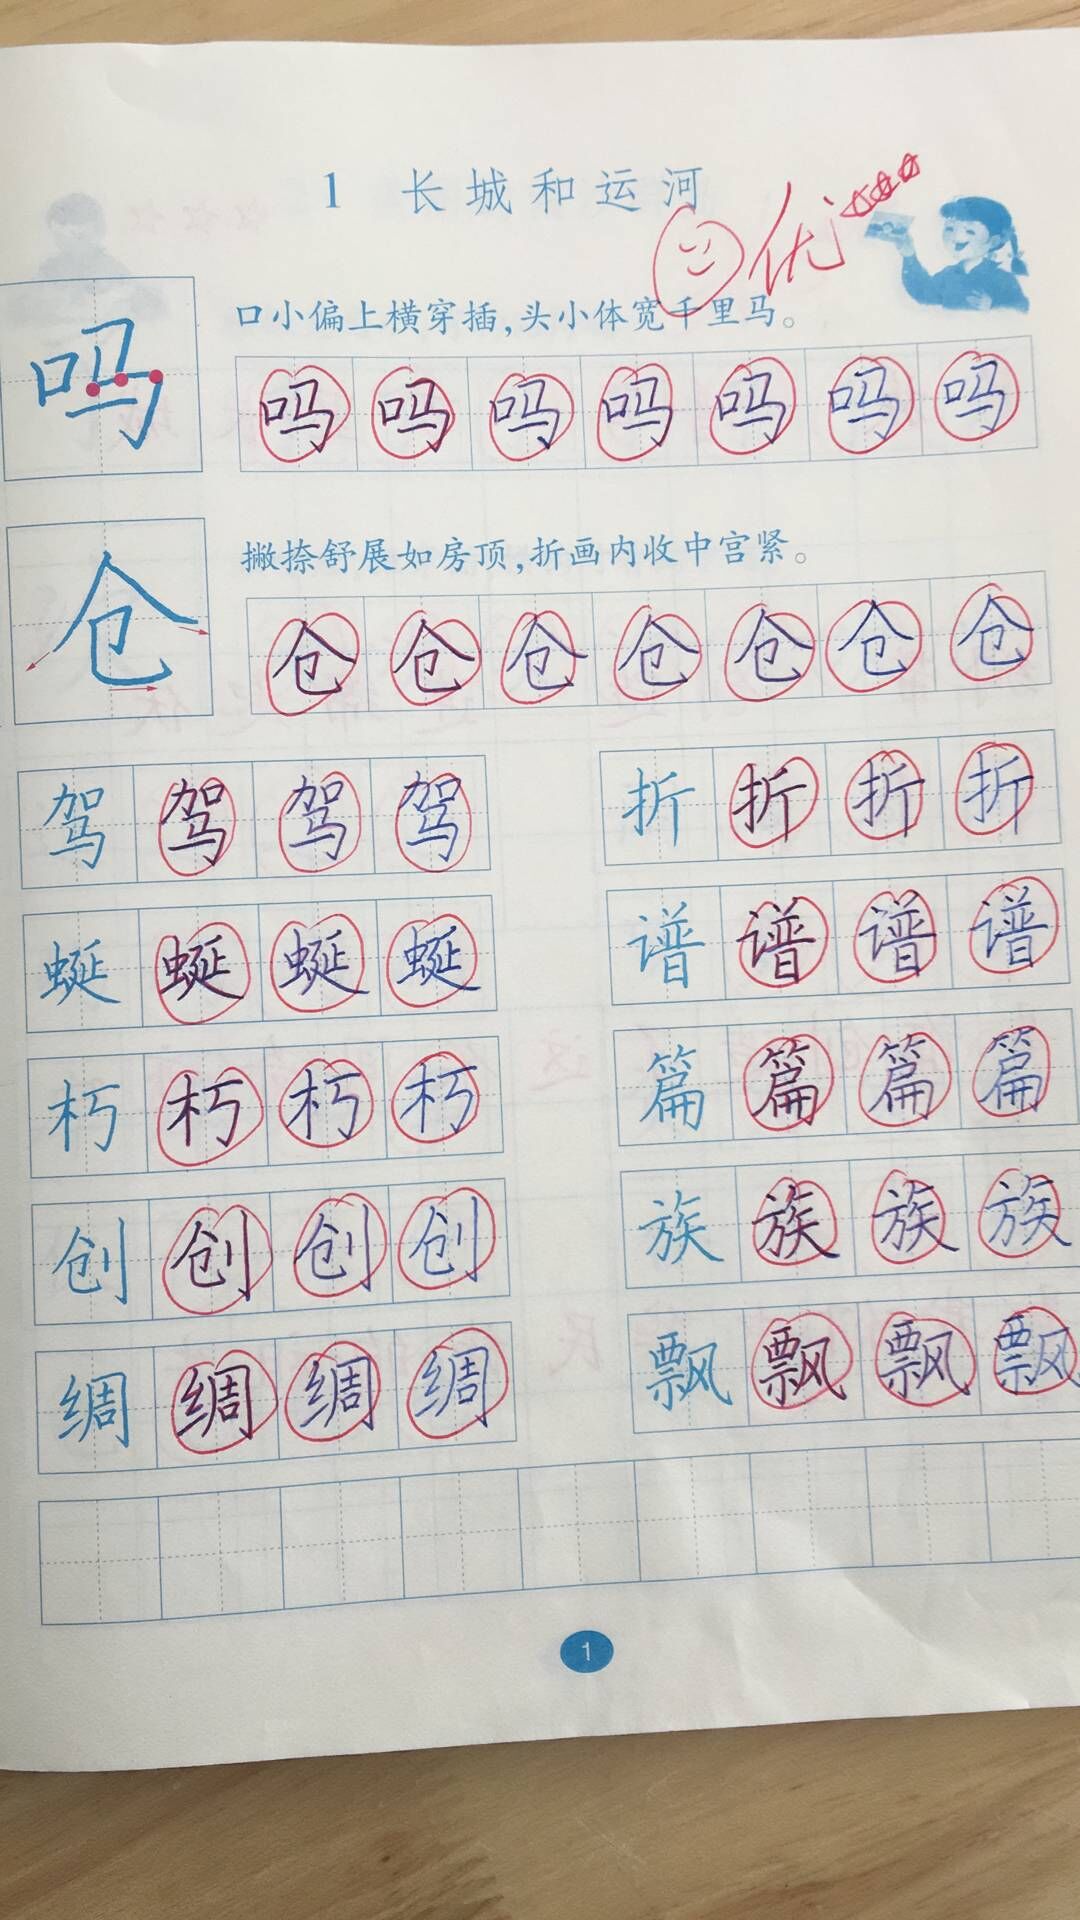 1 长城和运河
优
口小偏上横穿插，头小体宽千里马。
吗 吗 吗 吗 吗 吗 吗 吗
撇捺舒展如房顶，折画内收中宫紧。
仓 仓 仓 仓 仓 仓 仓 仓
驾 驾 驾 驾 折 折 折 折
蜒 蜒 蜒 蜒 谱 谱 谱 谱
朽 朽 朽 朽 篇 篇 篇 篇
创 创 创 创 族 族 族 族
绸 绸 绸 绸 飘 飘 飘 飘
1